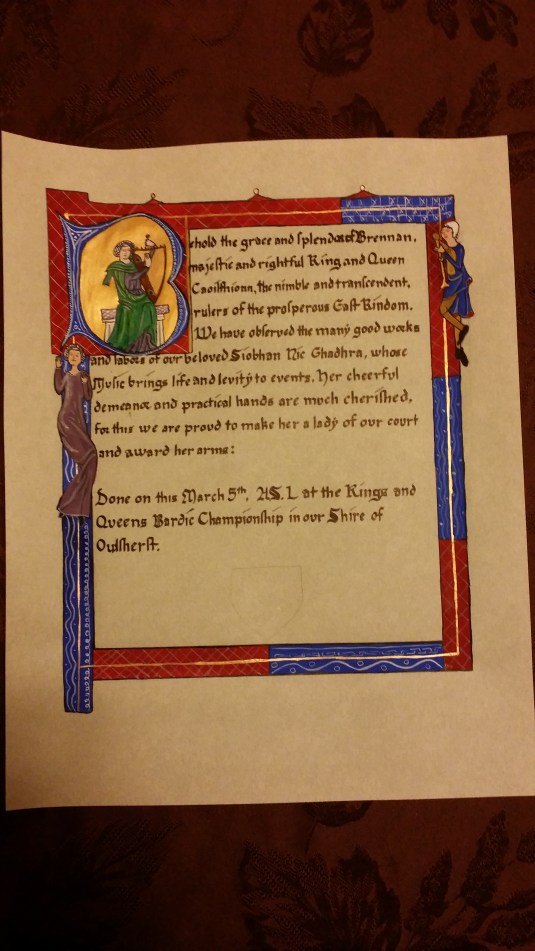 Behold the grace and splendor of Brennan,
majestic and rightful King and Queen
Caoilfhionn, the nimble and transcendent,
rulers of the prosperous East Kindom.
We have observed the many good works
and labors of our beloved Siobhan Nic Ghadhra, whose
Music brings life and levity to events. Her cheerful
demeanor and practical hands are much cherished,
for this we are proud to make her a lady of our court
and award her arms:
Done on this March 5th, AS. L at the Kings and
Queens Bardic Championship in our Shire of
Owlsherst.